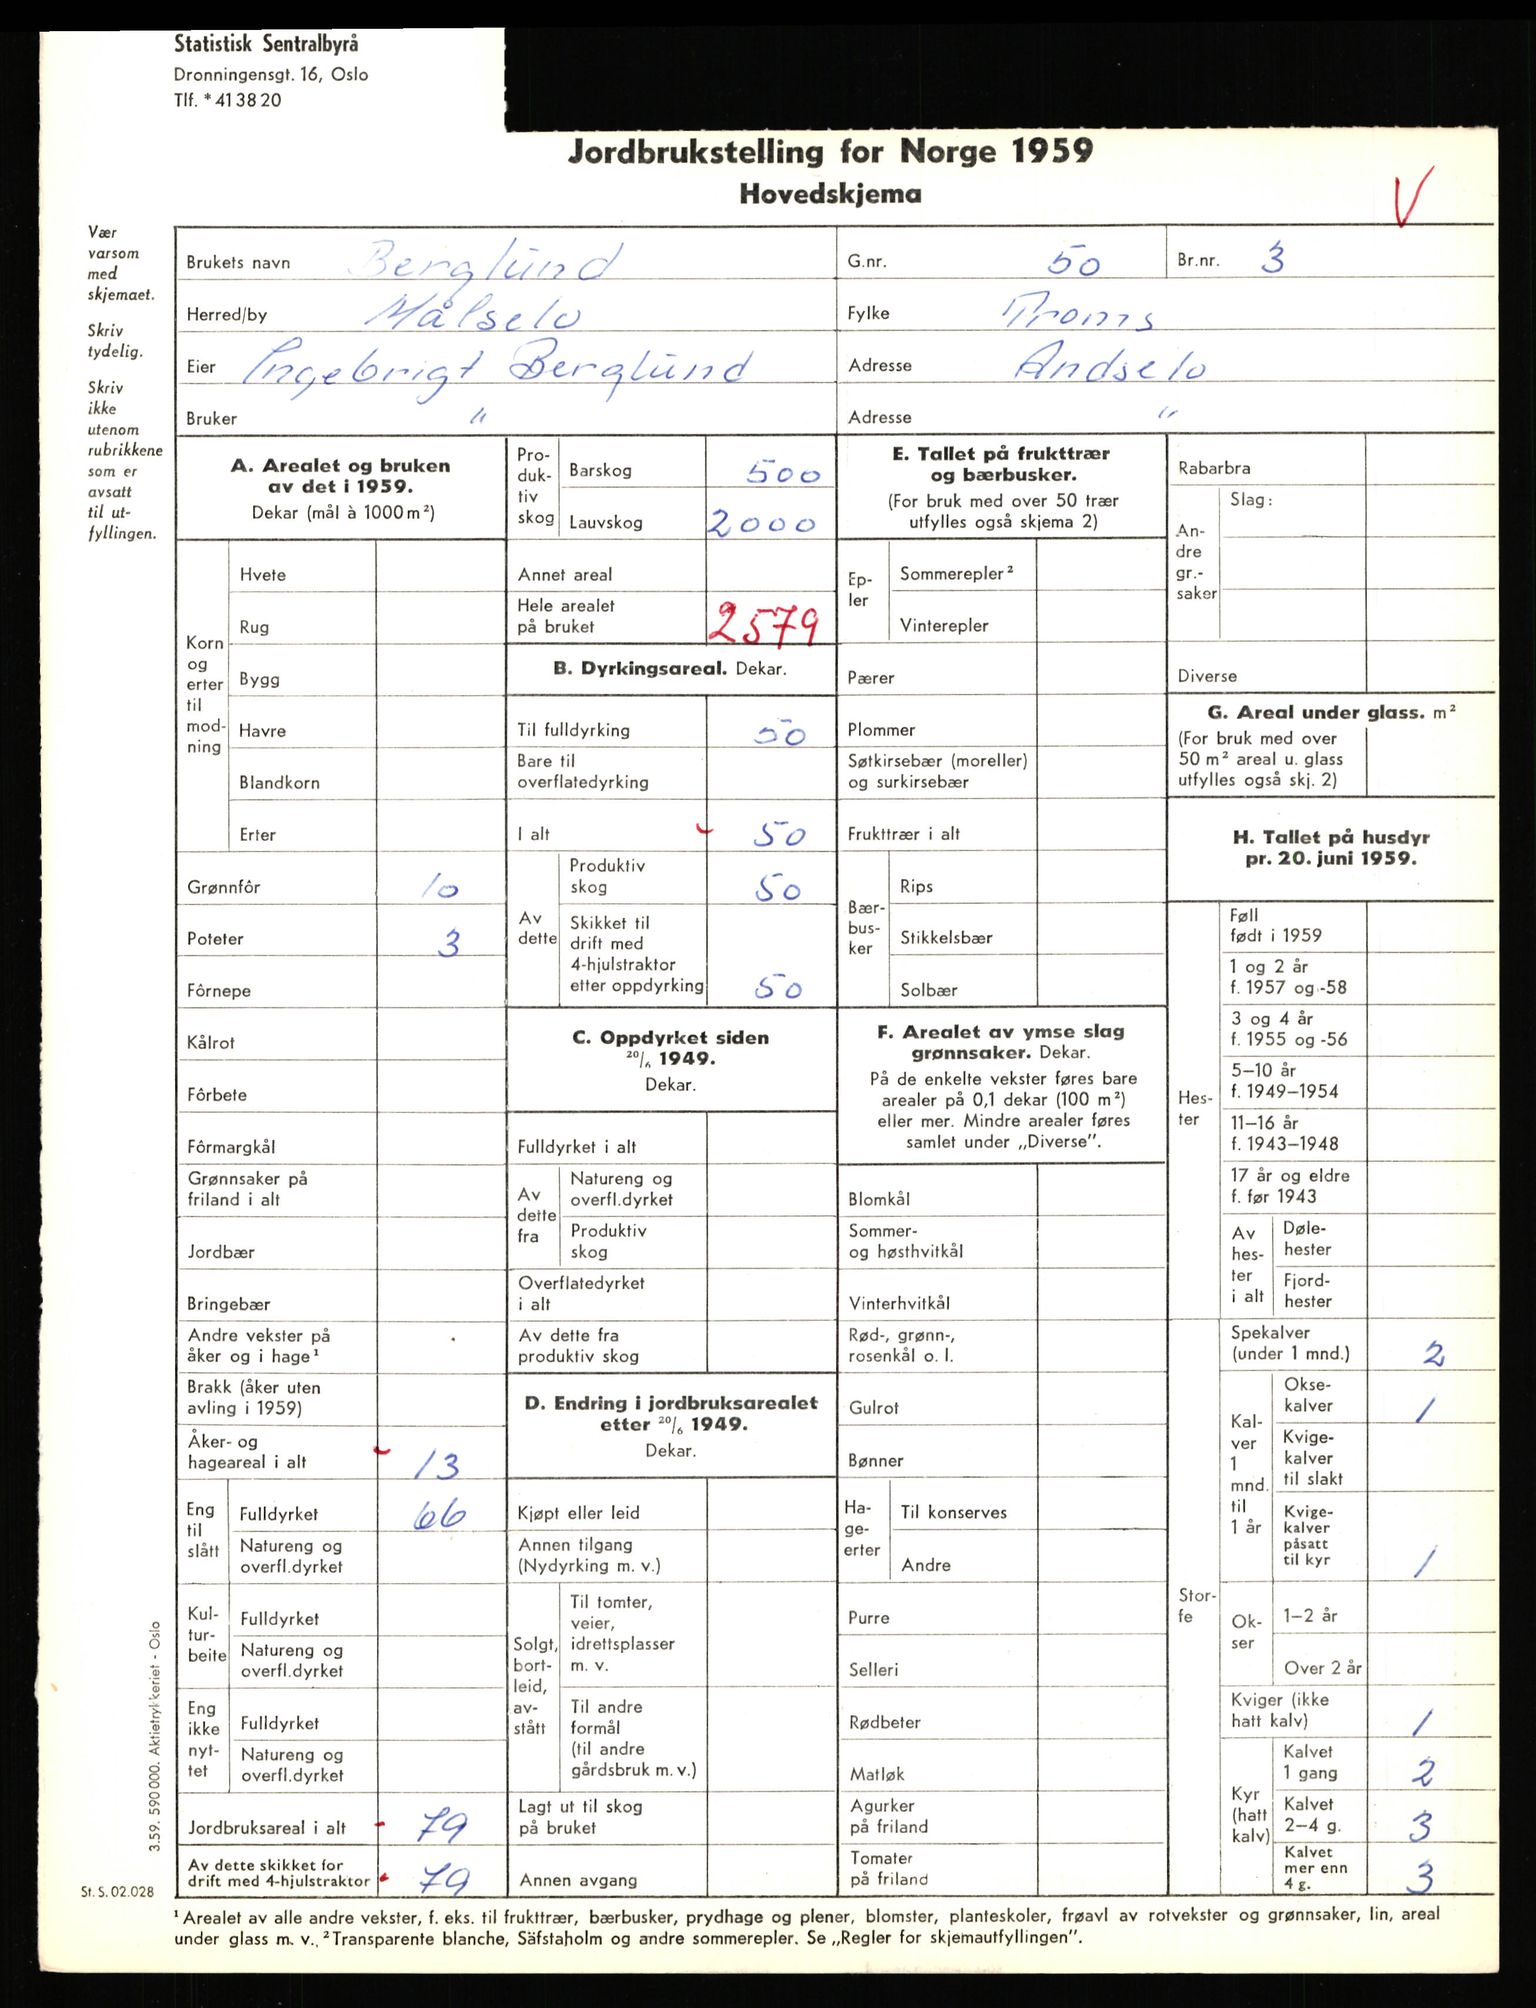 Statistisk Sentralbyrå
Dronningensgt. 16, Oslo
Tlf. * 41 38 20
Jordbrukstelling for Norge 1959
Hovedskjema
V
Vær
varsom
med
skjemaet.
Skriv
tydelig.
Skriv
ikke
utenom
rubrikkene
som er
avsatt
til ut-
fyllingen.
Brukets navn Berglund G.nr. 50 Br.nr. 3
Herred/by Målselv Fylke Troms
Eier Ingebrigt Berglund Adresse Andselv
Bruker " Adresse "
A. Arealet og bruken
av det i 1959.
Dekar (mål à 1000 m²)
Korn
og
erter
til
mod-
ning
Hvete
Rug
Bygg
Havre
Blandkorn
Erter
Grønnfôr 10
Poteter 3
Fôrnepe
Kålrot
Fôrbete
Fôrmargkål
Grønnsaker på
friland i alt
Jordbær
Bringebær
Andre vekster på
åker og i hage¹
Brakk (åker uten
avling i 1959)
Åker- og
hageareal i alt 13
Eng
til
slått
Fulldyrket 66
Natureng og
overfl.dyrket
Kul-
tur-
beite
Fulldyrket
Natureng og
overfl.dyrket
Eng
ikke
nyt-
tet
Fulldyrket
Natureng og
overfl.dyrket
Jordbruksareal i alt 79
Av dette skikket for
drift med 4-hjulstraktor 79
Pro-
duk-
tiv
skog
Barskog 500
Lauvskog 2000
Annet areal
Hele arealet
på bruket 2579
B. Dyrkingsareal. Dekar.
Til fulldyrking 50
Bare til
overflatedyrking
I alt 50
Av
dette
Produktiv
skog 50
Skikket til
drift med
4-hjulstraktor
etter oppdyrking 50
C. Oppdyrket siden
20/6 1949.
Dekar.
Fulldyrket i alt
Av
dette
fra
Natureng og
overfl.dyrket
Produktiv
skog
Overflatedyrket
i alt
Av dette fra
produktiv skog
D. Endring i jordbruksarealet
etter 20/6 1949.
Dekar.
Kjøpt eller leid
Annen tilgang
(Nydyrking m. v.)
Solgt,
bort-
leid,
av-
stått
Til tomter,
veier,
idrettsplasser
m. v.
Til andre
formål
(til andre
gårdsbruk m. v.)
Lagt ut til skog
på bruket
Annen avgang
E. Tallet på frukttrær
og bærbusker.
(For bruk med over 50 trær
utfylles også skjema 2)
Ep-
ler
Sommerepler²
Vinterepler
Pærer
Plommer
Søtkirsebær (moreller)
og surkirsebær
Frukttrær i alt
Bær-
bus-
ker
Rips
Stikkelsbær
Solbær
F. Arealet av ymse slag
grønnsaker. Dekar.
På de enkelte vekster føres bare
arealer på 0,1 dekar (100 m²)
eller mer. Mindre arealer føres
samlet under „Diverse".
Blomkål
Sommer-
og høsthvitkål
Vinterhvitkål
Rød-, grønn-,
rosenkål o. l.
Gulrot
Bønner
Ha-
ge-
erter
Til konserves
Andre
Purre
Selleri
Rødbeter
Matløk
Agurker
på friland
Tomater
på friland
Rabarbra
An-
dre
gr.-
saker
Slag:
Diverse
G. Areal under glass. m²
(For bruk med over
50 m² areal u. glass
utfylles også skj. 2)
H. Tallet på husdyr
pr. 20. juni 1959.
Hes-
ter
Føll
født i 1959
1 og 2 år
f. 1957 og -58
3 og 4 år
f. 1955 og -56
5–10 år
f. 1949–1954
11–16 år
f. 1943–1948
17 år og eldre
f. før 1943
Av
hes-
ter
i alt
Døle-
hester
Fjord-
hester
Stor-
fe
Spekalver
(under 1 mnd.) 2
Kal-
ver
1
mnd.
til
1 år
Okse-
kalver 1
Kvige-
kalver
til slakt
Kvige-
kalver
påsatt
til kyr 1
Ok-
ser
1–2 år
Over 2 år
Kviger (ikke
hatt kalv) 1
Kyr
(hatt
kalv)
Kalvet
1 gang 2
Kalvet
2–4 g. 3
Kalvet
mer enn
4 g. 3
3.59. 590 000. Aktietrykkeriet - Oslo
St. S. 02.028
¹ Arealet av alle andre vekster, f. eks. til frukttrær, bærbusker, prydhage og plener, blomster, planteskoler, frøavl av rotvekster og grønnsaker, lin, areal
under glass m. v.. ² Transparente blanche, Säfstaholm og andre sommerepler. Se „Regler for skjemautfyllingen".